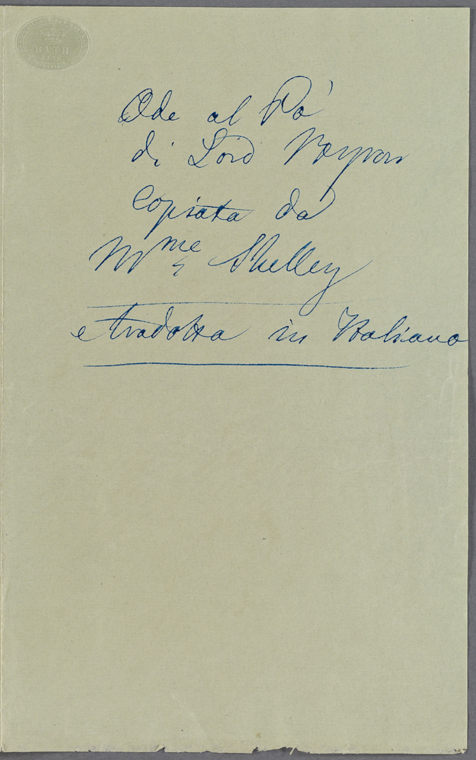 Ode al Pò
di Lord Byron
copiata da
Mme Shelley
e tradotta in Italiano